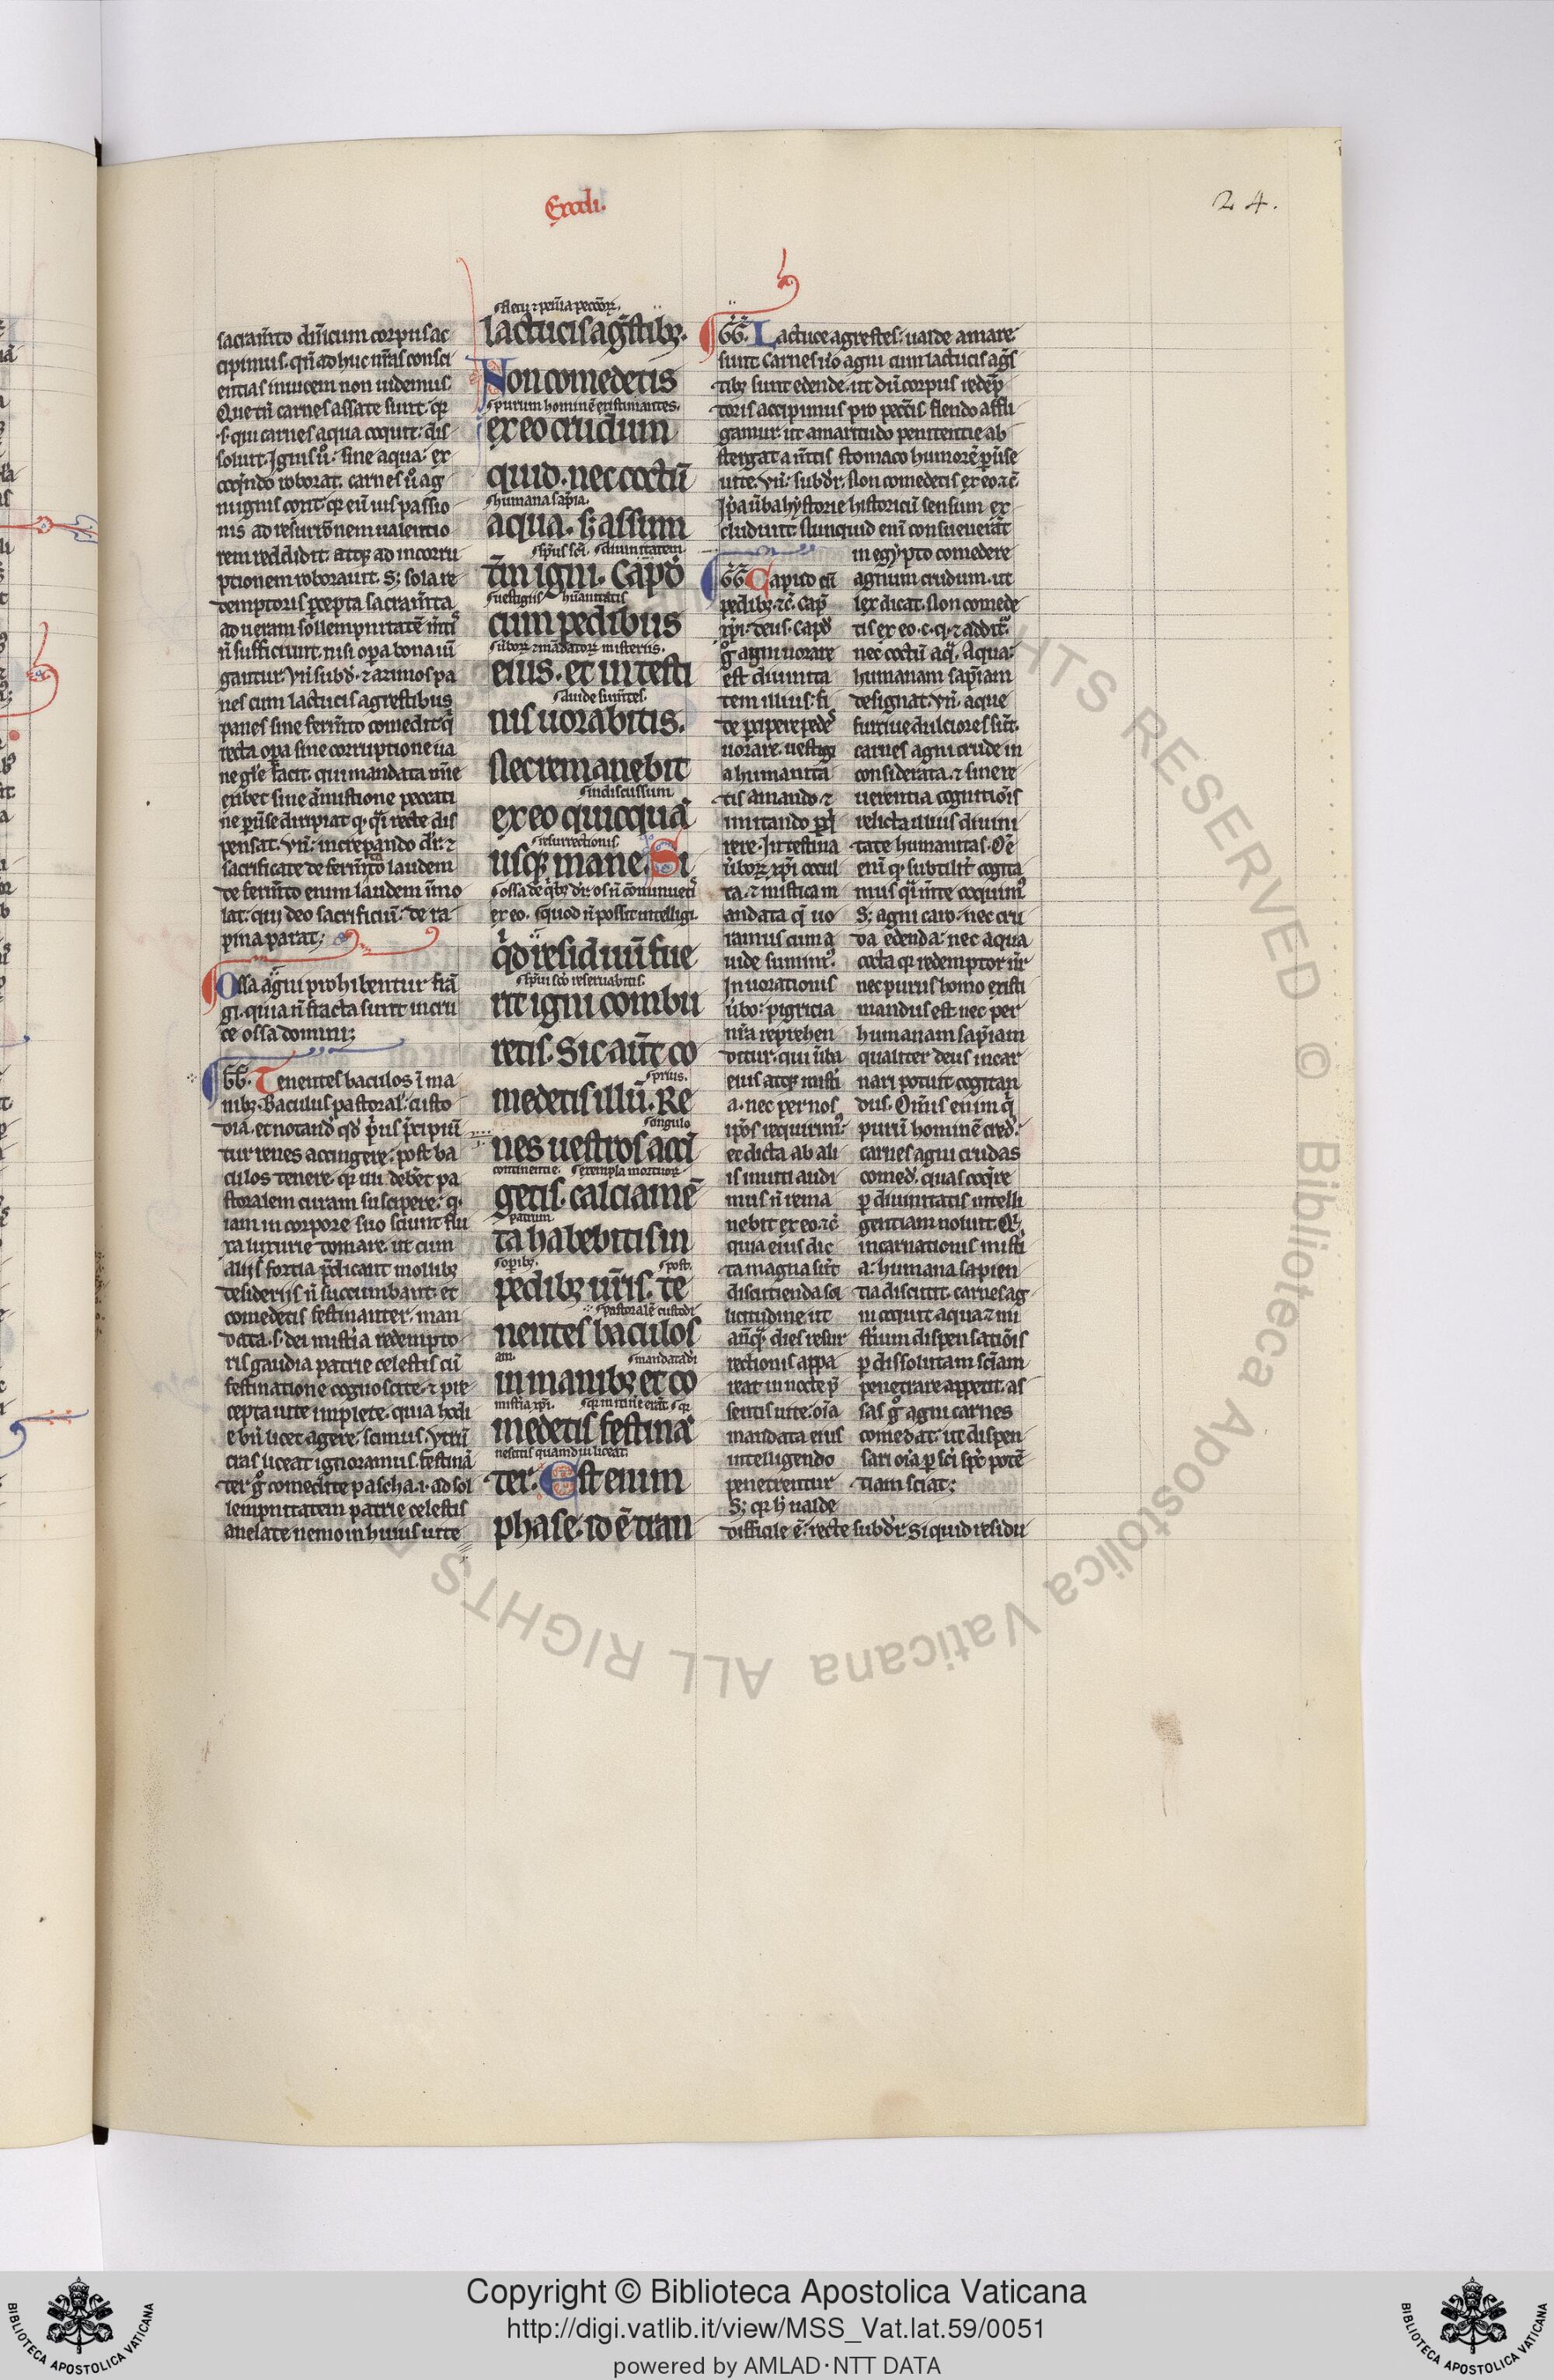 Exodi.
24.
sacram̄to dn̄icum corpus ac
cipimus. qn̄ adhuc nr̄as consci
entias inuicem non uidemus
Que tn̄ carnes assate sunt. qr
.s. qui carnes aqua coquit: dis
soluit. Ignis u͛o: sine aqua: ex
coq̄ndo roborat. carnes u͛o ag
ni ignis coxit. qr eū uis passio
nis ad resurrc̄onem ualentio
rem reddidit. atqꝫ ad incorru
ptionem roborauit. Sꝫ sola re
demptoris p̄cepta sacram̄ta
ad ueram sollempnitatē m̄tis
n̄ sufficiunt. nisi op̄a bona iū
gantur. Vn̄ subdr̄. ⁊ azimos pa
nes cum lactucis agrestibus
panes sine ferm̄to comedit. qͥ
recta op̄a sine corruptione ua
ne gl'e facit. qui mandata mīe
exibet sine āmistione peccati
pensat. Vn̄: increpando dr̄: ⁊
sacrificate de ferm̄to laudem
de ferm̄to enim laudem īmo
lat. qui deo sacrificiū: de ra
pina parat;
Ossa agni prohibentur frā
gi. quia n̄ fracta sunt in cru
ce ossa domini;
GG. Tenentes baculos ī ma
nibꝫ. Baculus pastoral'. custo
dia. et notand̄ qd̄ p̄us p̄cipiūt
tur renes accingere. post ba
culos tenere. qr illi debēt pa
storalem curam suscipere. q
iam in corpore suo sciunt flu
xa luxurie domare. ut cum
aliis fortia p̄dicant mollibꝫ
desideriis n̄ succumbant. et
comedetis festinanter. man
data .s. dei mist̄ia redempto
ris gaudia patrie celestis cū
festinatione cognoscite. ⁊ pre
cepta uite implete. quia hodi
e bn̄ licet agere scimus. Vtrū
cras liceat ignoramus. festinā
ter g͛ comedite pascha .i. ad sol
lempnitatem patrie celestis
anelate nemo in huius uite
fletu ⁊ penīa peccōꝝ.
lactucis ag͛stibꝫ.
Non comedetis
purum hominē existimantes.
ex eo crudum
quid. nec coctū
humana sap̄ia.
aqua. sꝫ assum
sp̄us sc̄i. diuinitatem
tm̄ igni. Capd̄
uestigiis humanitatis
cum pedibus
ūboꝝ ⁊ mādatoꝝ misteriis.
eius. et intesti
auide sum̄tes.
nis uorabitis.
Nec remanebit
indiscussum
ex eo quicquā
resurrectionis
usqꝫ mane. Si
ossa de q̄bꝫ dr̄. os n̄ cōminueti͛
ex eo. quod n̄ possit intelligi.
q͛d residuū fue
sp̄ui sc̄o reseruabitis.
rit igni combu
retis. Sic aūt co
prius.
medetis illū. Re
cingulo
nes uestros acci
continentie. exempla mortuoꝝ
getis. calciamē
patrum
ta habebitis in
opibꝫ. post.
pedibꝫ ur̄is. te
pastoralē custodi
nentes baculos
am. mandata dī
in manibꝫ et co
medetis festinā
nescitis quamdiu liceat.
ter. Est enim
phase. id ē tran
GG. Lactuce agrestes: ualde amare
sunt. Carnes u͛o agni cum lactucis ag͛s
tibꝫ sunt edende. ut dū corpus redēp
toris accipimus pro pecc̄is flendo affli
gamur. ut amaritudo penitentie ab
stergat a m̄tis stomaco humorē puerse
uite. Vn̄: subdr̄. Non comedetis ex eo ⁊c̄
Ip̄a ūba hystorie historicū sensum ex
cludunt. Nunquid eni consueuerāt
in egypto comedere
agnum crudum. ut
lex dicat. Non comede
tis ex eo .c. q. ⁊ addit͛
nec coctū aq͛. Aqua:
humanam sap̄iam
designat. Vn̄. aque
furtiue dulciores sūt.
carnes agni crude in
considerata. ⁊ sine re
uerentia cognitiōis
relicta illius diuini
tate humanitas. Oē
enī qr subtilit͛ cogita
mus q͛i m̄te coquim͛
Sꝫ agni caro. nec cru
da edenda: nec aqua
cocta qr redemptor nr̄
nec purus homo existi
mandus est nec per
humanam sap̄iam
qualiter deus incar
nari potuit cogitan
dus. Omīs enim q͛
purū hominē cred̄:
carnes agni crudas
comed̄. quas coq͛re
p diuinitatis intelli
gentiam noluit. Qr
incarnationis mist̄i
a: humana sapien
tia discutit. carnes ag
ni coquit aqua ⁊ mi
st̄ium dispensatiōis
p dissolutam sc̄iam
penetrare appetit. as
sas g͛ agni carnes
comedat. ut dispen
sari oīa p sc̄i sp̄c potē
tiam sciat;
GG. Caput cū
pedibꝫ ⁊c̄. Cap̄
xp̄i: deus. Capd̄
g͛ agni uorare
est diuinita
tem illius: fi
de pcipere pede͛
uorare. uestigi
a humanita
tis amando ⁊
imitando p̄q͛
rere. Intestina
ūboꝝ xp̄i occul
ta. ⁊ mistica m
andata q̄ uo
ramus cum a
uide sumim͛.
In uorationis
ūbo: pigricia
nr̄a reprehen
ditur. qui ūba
eius atqꝫ mist̄i
a. nec per nos
ip̄os requirim͛.
et dicta ab ali
is inuiti audi
mus n̄ rema
nebit ex eo. ⁊c̄
quia eius dic
ta magna sūt
discutienda sol
licitudine ut
an̄q͛. dies resur
rectionis appa
reat in nocte p̄
sentis uite. oīa
mandata eius
intelligendo
penetrentur
Sꝫ qr h̄ ualde
difficile ē: recte subdr̄. Si quid residu
Copyright © Biblioteca Apostolica Vaticana
http://digi.vatlib.it/view/MSS_Vat.lat.59/0051
powered by AMLAD·NTT DATA
BIBLIOTECA APOSTOLICA VATICANA
BIBLIOTECA APOSTOLICA VATICANA
ALL RIGHTS RESERVED © Biblioteca Apostolica Vaticana